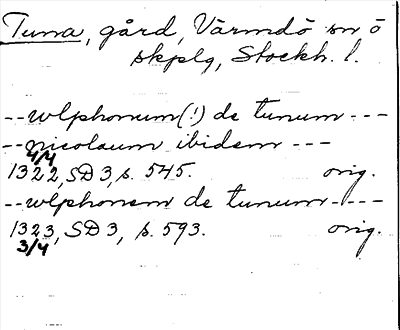 Tuna, gård, Värmdö sn o
skplg, Stockh. l.
--wlphonum(!) de tunum---
--nicolaum ibidem---
4/4
1322, SD 3, s. 545. orig.
--wlphonem de tunum----
1323, SD 3, s. 593. orig.
3/4